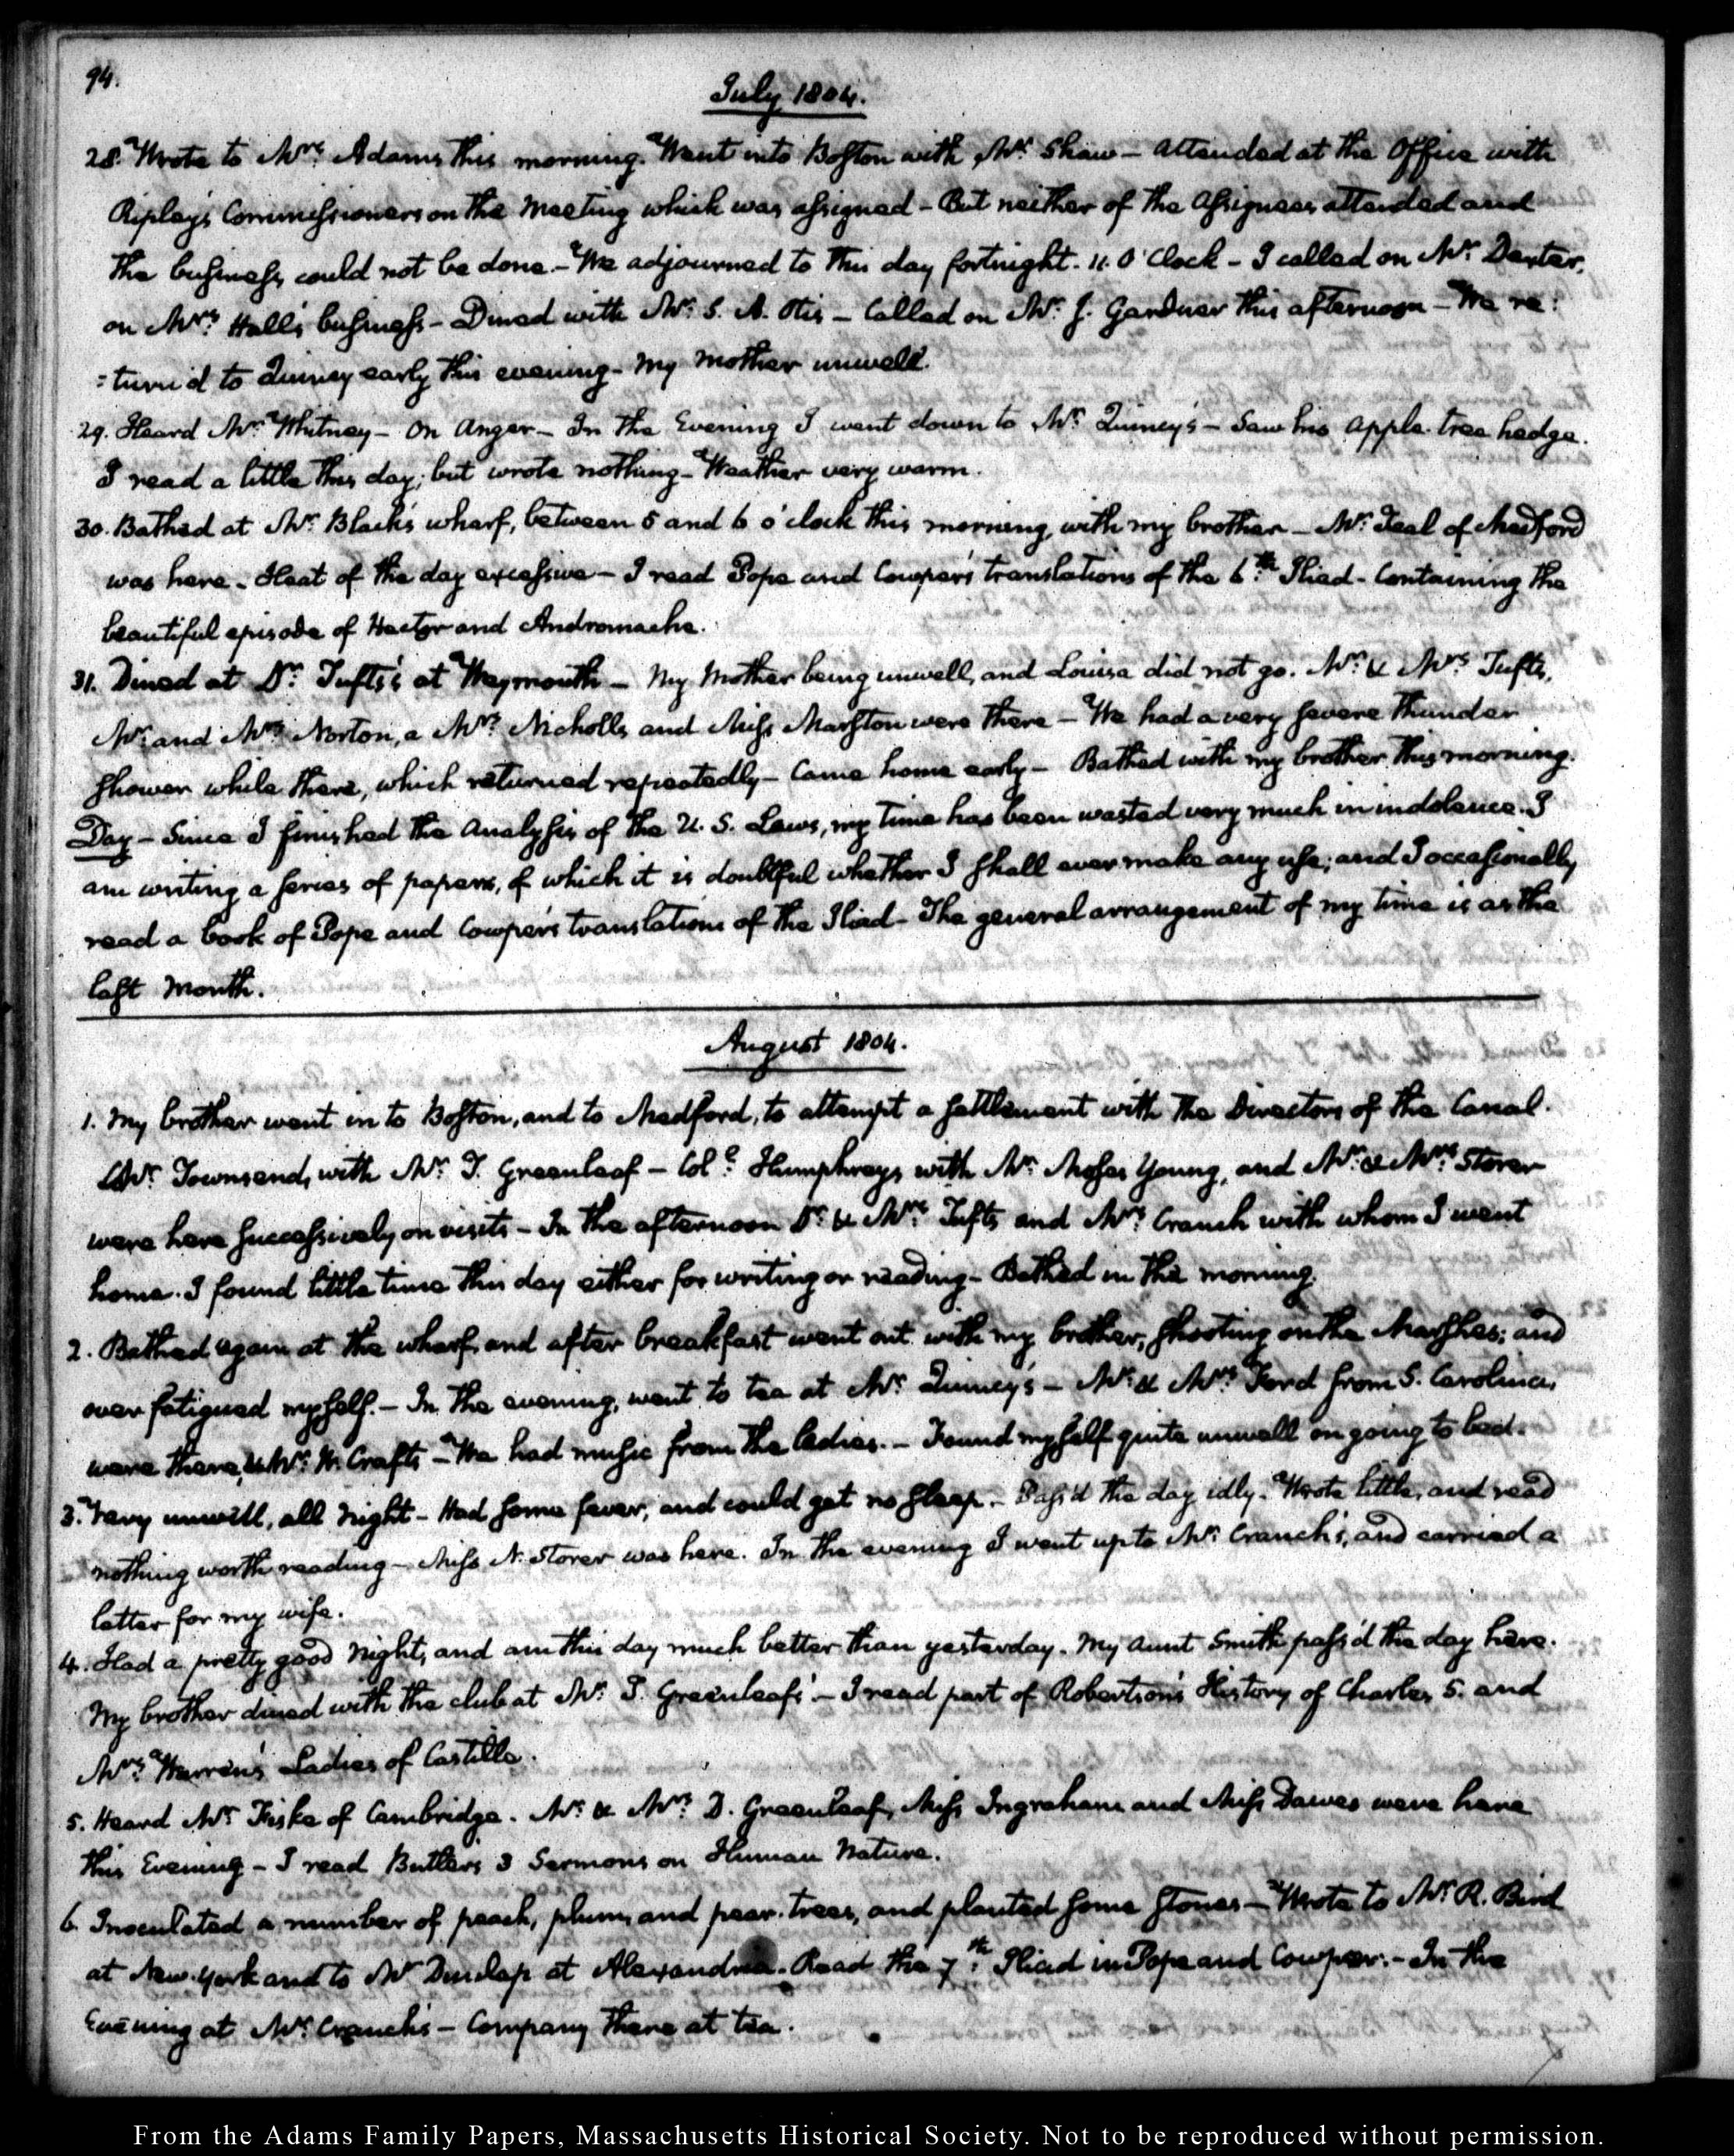 94.
July 1804.
28. Wrote to Mrs. Adams this morning. Went into Boston with Mr. Shaw — attended at the Office with
Ripley's Commissioners on the meeting which was assigned — But neither of the Assignees attended and
the business could not be done. — We adjourned to this day fortnight. 11. O'Clock — I called on Mr. Dexter,
on Mrs. Hall's business — Dined with Mr. S. A. Otis — Called on Mr. J. Gardner this afternoon — We re:
:turn'd to Quincy early this evening — My Mother unwell.
29. Heard Mr. Whitney — On Anger — In the Evening I went down to Mr. Quincy's — Saw his apple-tree hedge.
I read a little this day; but wrote nothing — Weather very warm.
30. Bathed at Mr. Black's wharf, between 5 and 6 o'clock this morning, with my brother — Mr. Teal of Medford
was here — Heat of the day excessive — I read Pope and Cowper's translations of the 6th. Iliad — Containing the
beautiful episode of Hector and Andromache.
31. Dined at Dr. Tufts's at Weymouth — My Mother being unwell, and Louisa did not go. Mr. & Mrs. Tufts,
Mr. and Mrs. Norton, a Mrs. Nicholls and Miss Marston were there — We had a very severe thunder
shower while there, which returned repeatedly — Came home early — Bathed with my brother this morning.
Day — Since I finished the Analysis of the U. S. Laws, my time has been wasted very much in indolence. I
am writing a series of papers, of which it is doubtful whether I shall ever make any use; and I occasionally
read a book of Pope and Cowper's translations of the Iliad — The general arrangement of my time is as the
last month.
August 1804.
1. My brother went in to Boston, and to Medford, to attempt a settlement with the Directors of the Canal.
Mr. Townsend, with Mr. T. Greenleaf — Coll. Humphreys with Mr. Moses Young, and Mr. & Mrs. Storer
were here successively on visits — In the afternoon Dr. & Mrs. Tufts and Mrs. Cranch with whom I went
home. I found little time this day either for writing or reading — Bathed in the morning.
2. Bathed again at the wharf, and after breakfast went out with my brother, shooting on the Marshes; and
over fatigued myself. — In the evening, went to tea at Mr. Quincy's — Mr. & Mrs. Ford from S. Carolina,
were there, & Mr. W. Crafts — We had music from the ladies. — Found myself quite unwell on going to bed.
3. Very unwell, all night — Had some fever, and could get no sleep. — Pass'd the day idly. Wrote little, and read
nothing worth reading — Miss N. Storer was here. In the evening I went up to Mr. Cranch's, and carried a
letter for my wife.
4. Had a pretty good night, and am this day much better than yesterday. My aunt Smith pass'd the day here.
My brother dined with the club at Mr. T. Greenleaf's — I read part of Robertson's History of Charles 5. and
Mrs. Warren's Ladies of Castille.
5. Heard Mr. Fiske of Cambridge. Mr. & Mrs. D. Greenleaf, Miss Ingraham and Miss Dawes were here
this Evening — I read Butler's 3 Sermons on Human Nature.
6. Inoculated a number of peach, plum, and pear-trees, and planted some stones — Wrote to Mr. R. Bird
at New-York and to Mr. Dunlap at Alexandria. Read the 7th. Iliad in Pope and Cowper. — In the
Evening at Mr. Cranch's — Company there at tea.
From the Adams Family Papers, Massachusetts Historical Society. Not to be reproduced without permission.